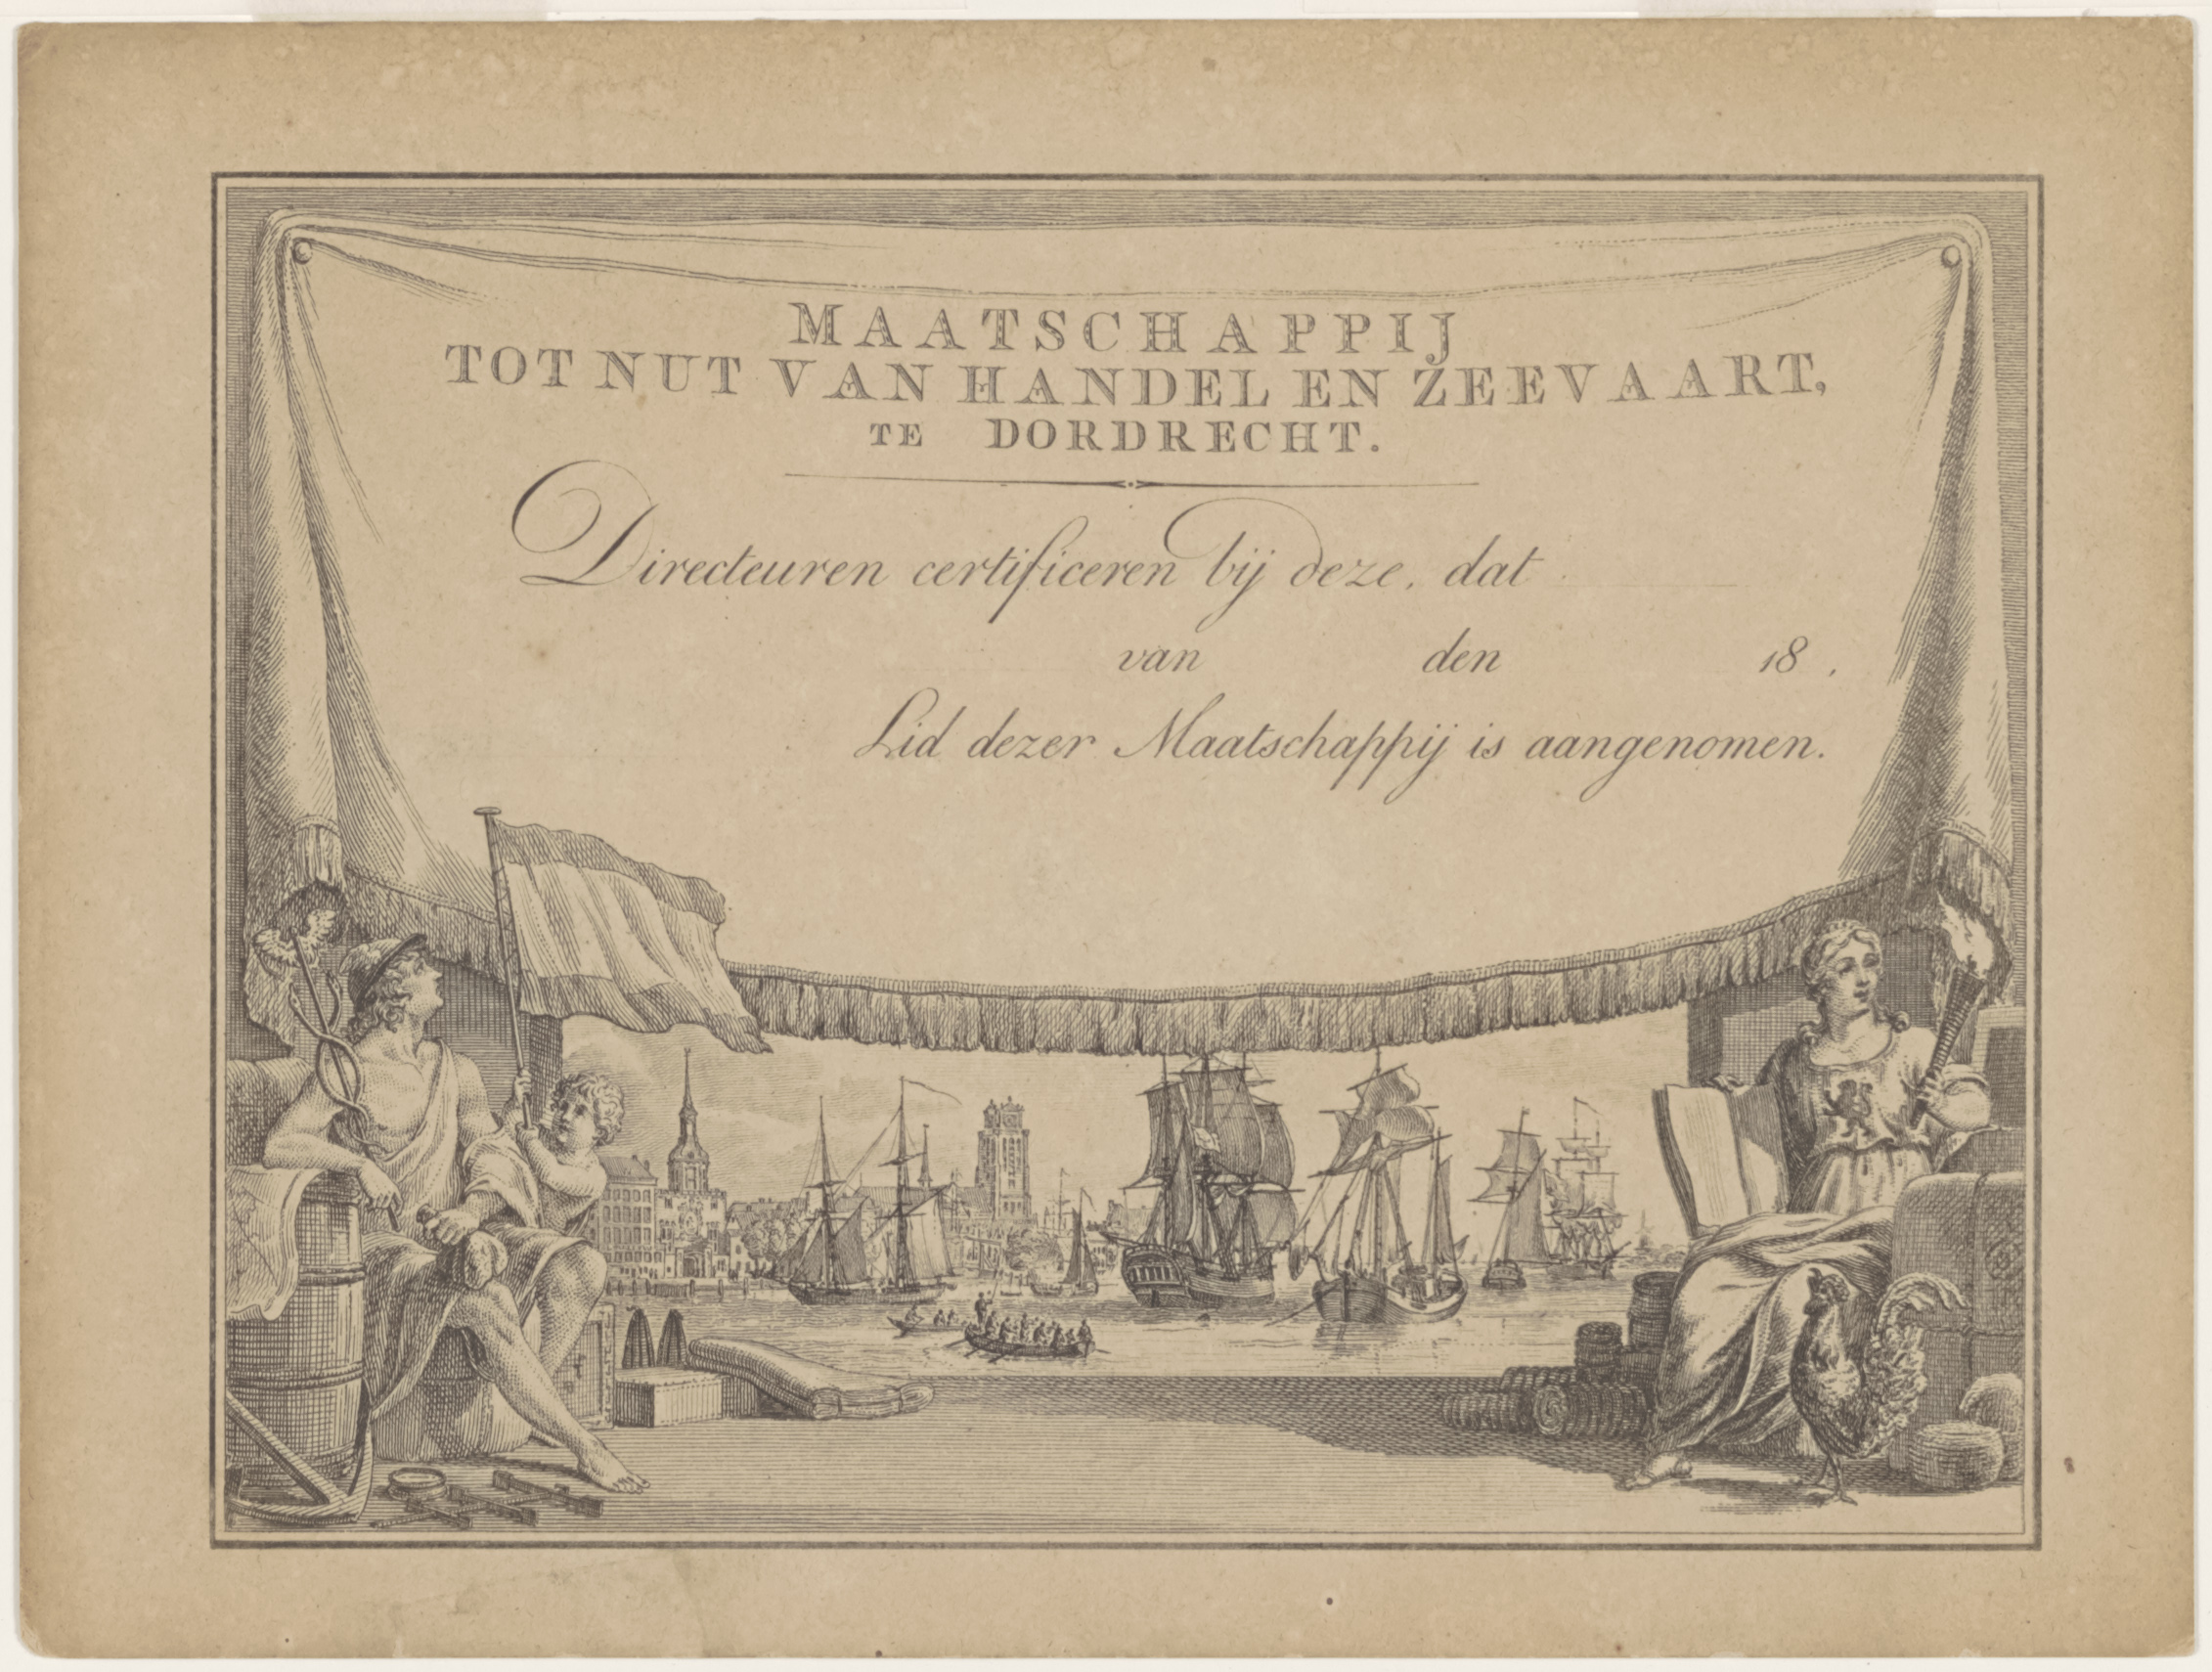 MAATSCHAPPIJ
TOT NUT VAN HANDEL EN ZEEVAART,
TE DORDRECHT.
Directeuren certificeren bij deze, dat
van den 18 .
Lid dezer Maatschappij is aangenomen.